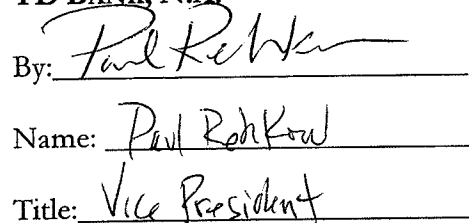 TD BANK, N.A.
By: Paul Rehkow
Name: Paul Rehkow
Title: Vice President